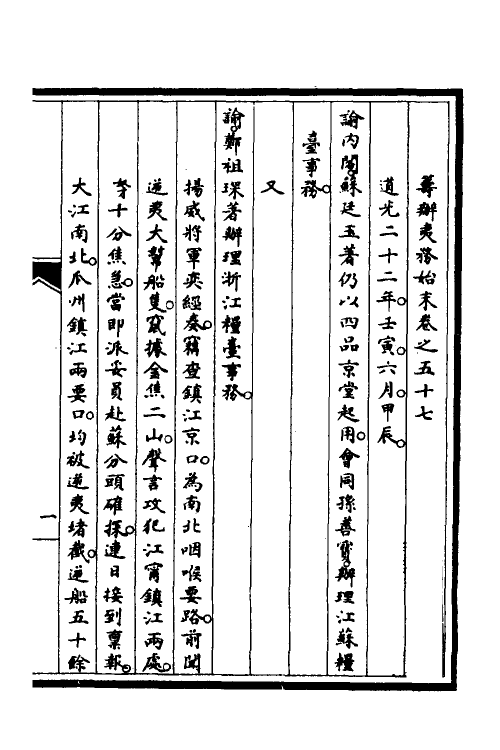 籌辦夷務始末卷之五十七
道光二十二年。壬寅。六月。甲辰。
諭內閣。蘇廷玉著仍以四品京堂起用。會同孫善寶。辦理江蘇糧
臺事務。
又
諭。鄭祖琛著辦理浙江糧臺事務。
揚威將軍奕經奏。竊查鎮江京口。為南北咽喉要路。前聞
逆夷大幫船隻。竄據金焦二山。聲言攻犯江甯鎮江兩處。
等十分焦急。當即派妥員赴蘇分頭確探。連日接到稟報。
大江南北。瓜州鎮江兩要口。均被逆夷堵截。逆船五十餘
一